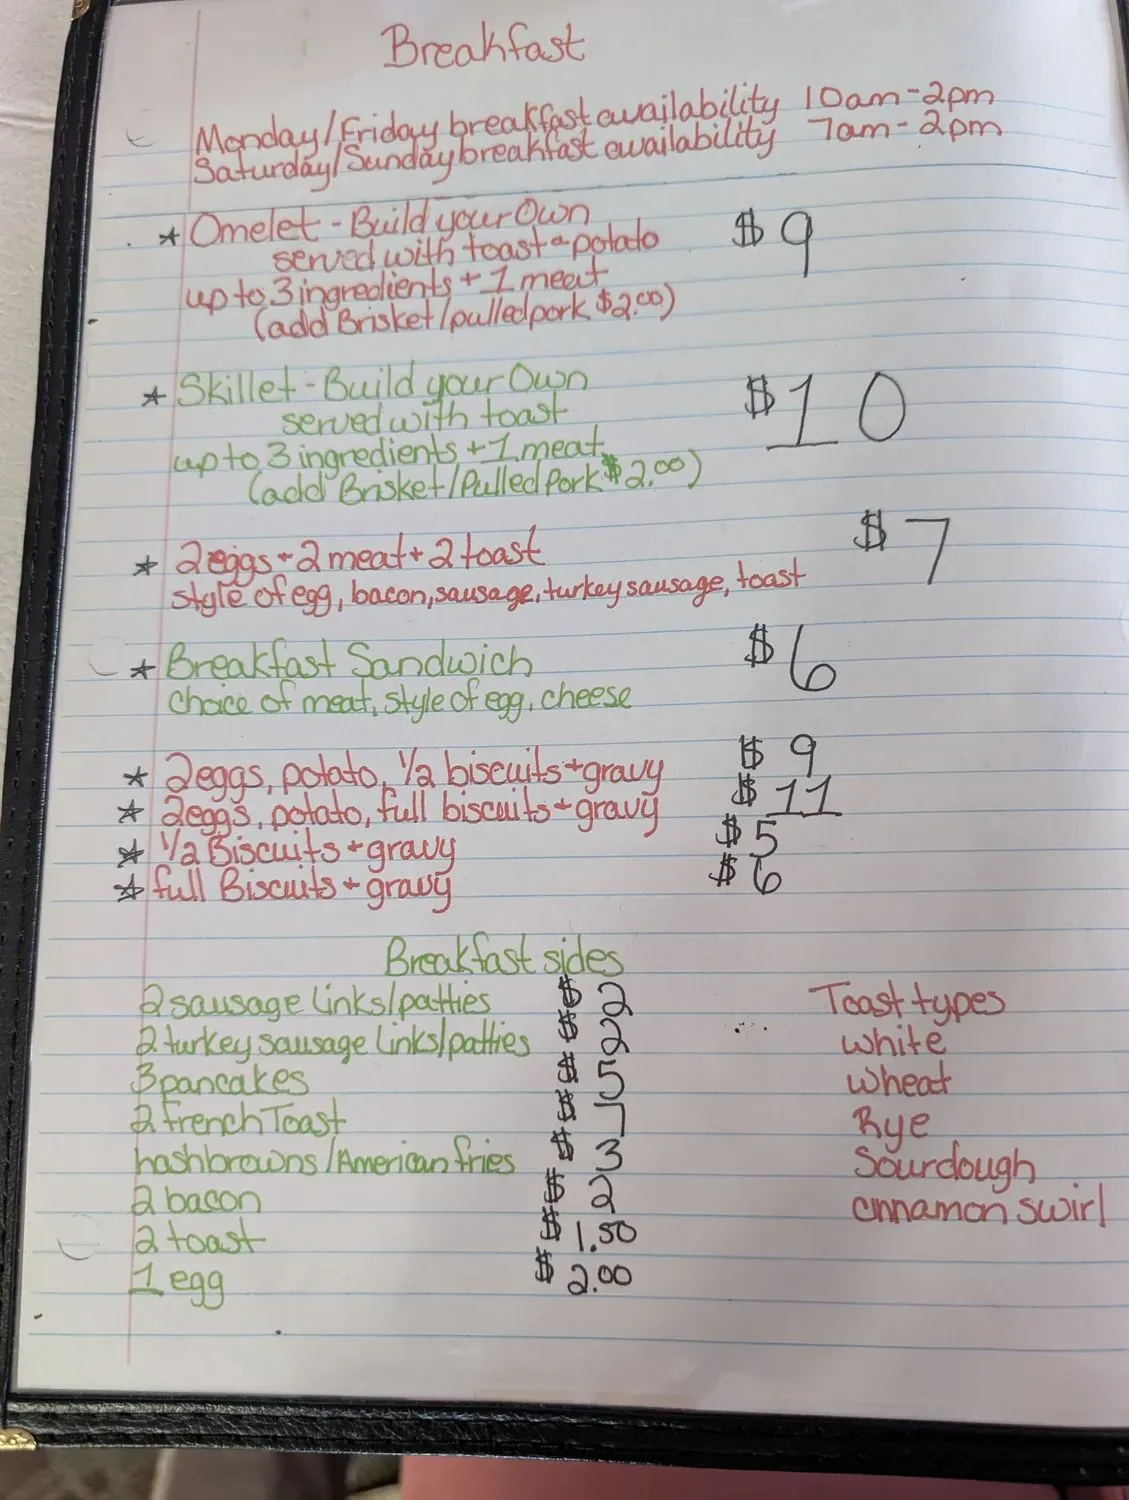 Breakfast
Monday/Friday breakfast availability 10am-2pm
Saturday/Sunday breakfast availability 7am-2pm
* Omelet - Build your Own $9
served with toast + potato
up to 3 ingredients + 1 meat
(add Brisket/pulled pork $2.00)
* Skillet - Build your Own $10
served with toast
up to 3 ingredients + 1 meat
(add Brisket/Pulled Pork $2.00)
* 2 eggs + 2 meat + 2 toast $7
style of egg, bacon, sausage, turkey sausage, toast
* Breakfast Sandwich $6
choice of meat, style of egg, cheese
* 2 eggs, potato, 1/2 biscuits + gravy $9
* 2 eggs, potato, full biscuits + gravy $11
* 1/2 Biscuits + gravy $5
* full Biscuits + gravy $6
Breakfast sides
2 sausage links/patties $2
2 turkey sausage links/patties $2
3 pancakes $5
2 french Toast $7
hashbrowns/American fries $3
2 bacon $2
2 toast $1.50
1 egg $2.00
Toast types
white
wheat
Rye
Sourdough
cinnamon swirl